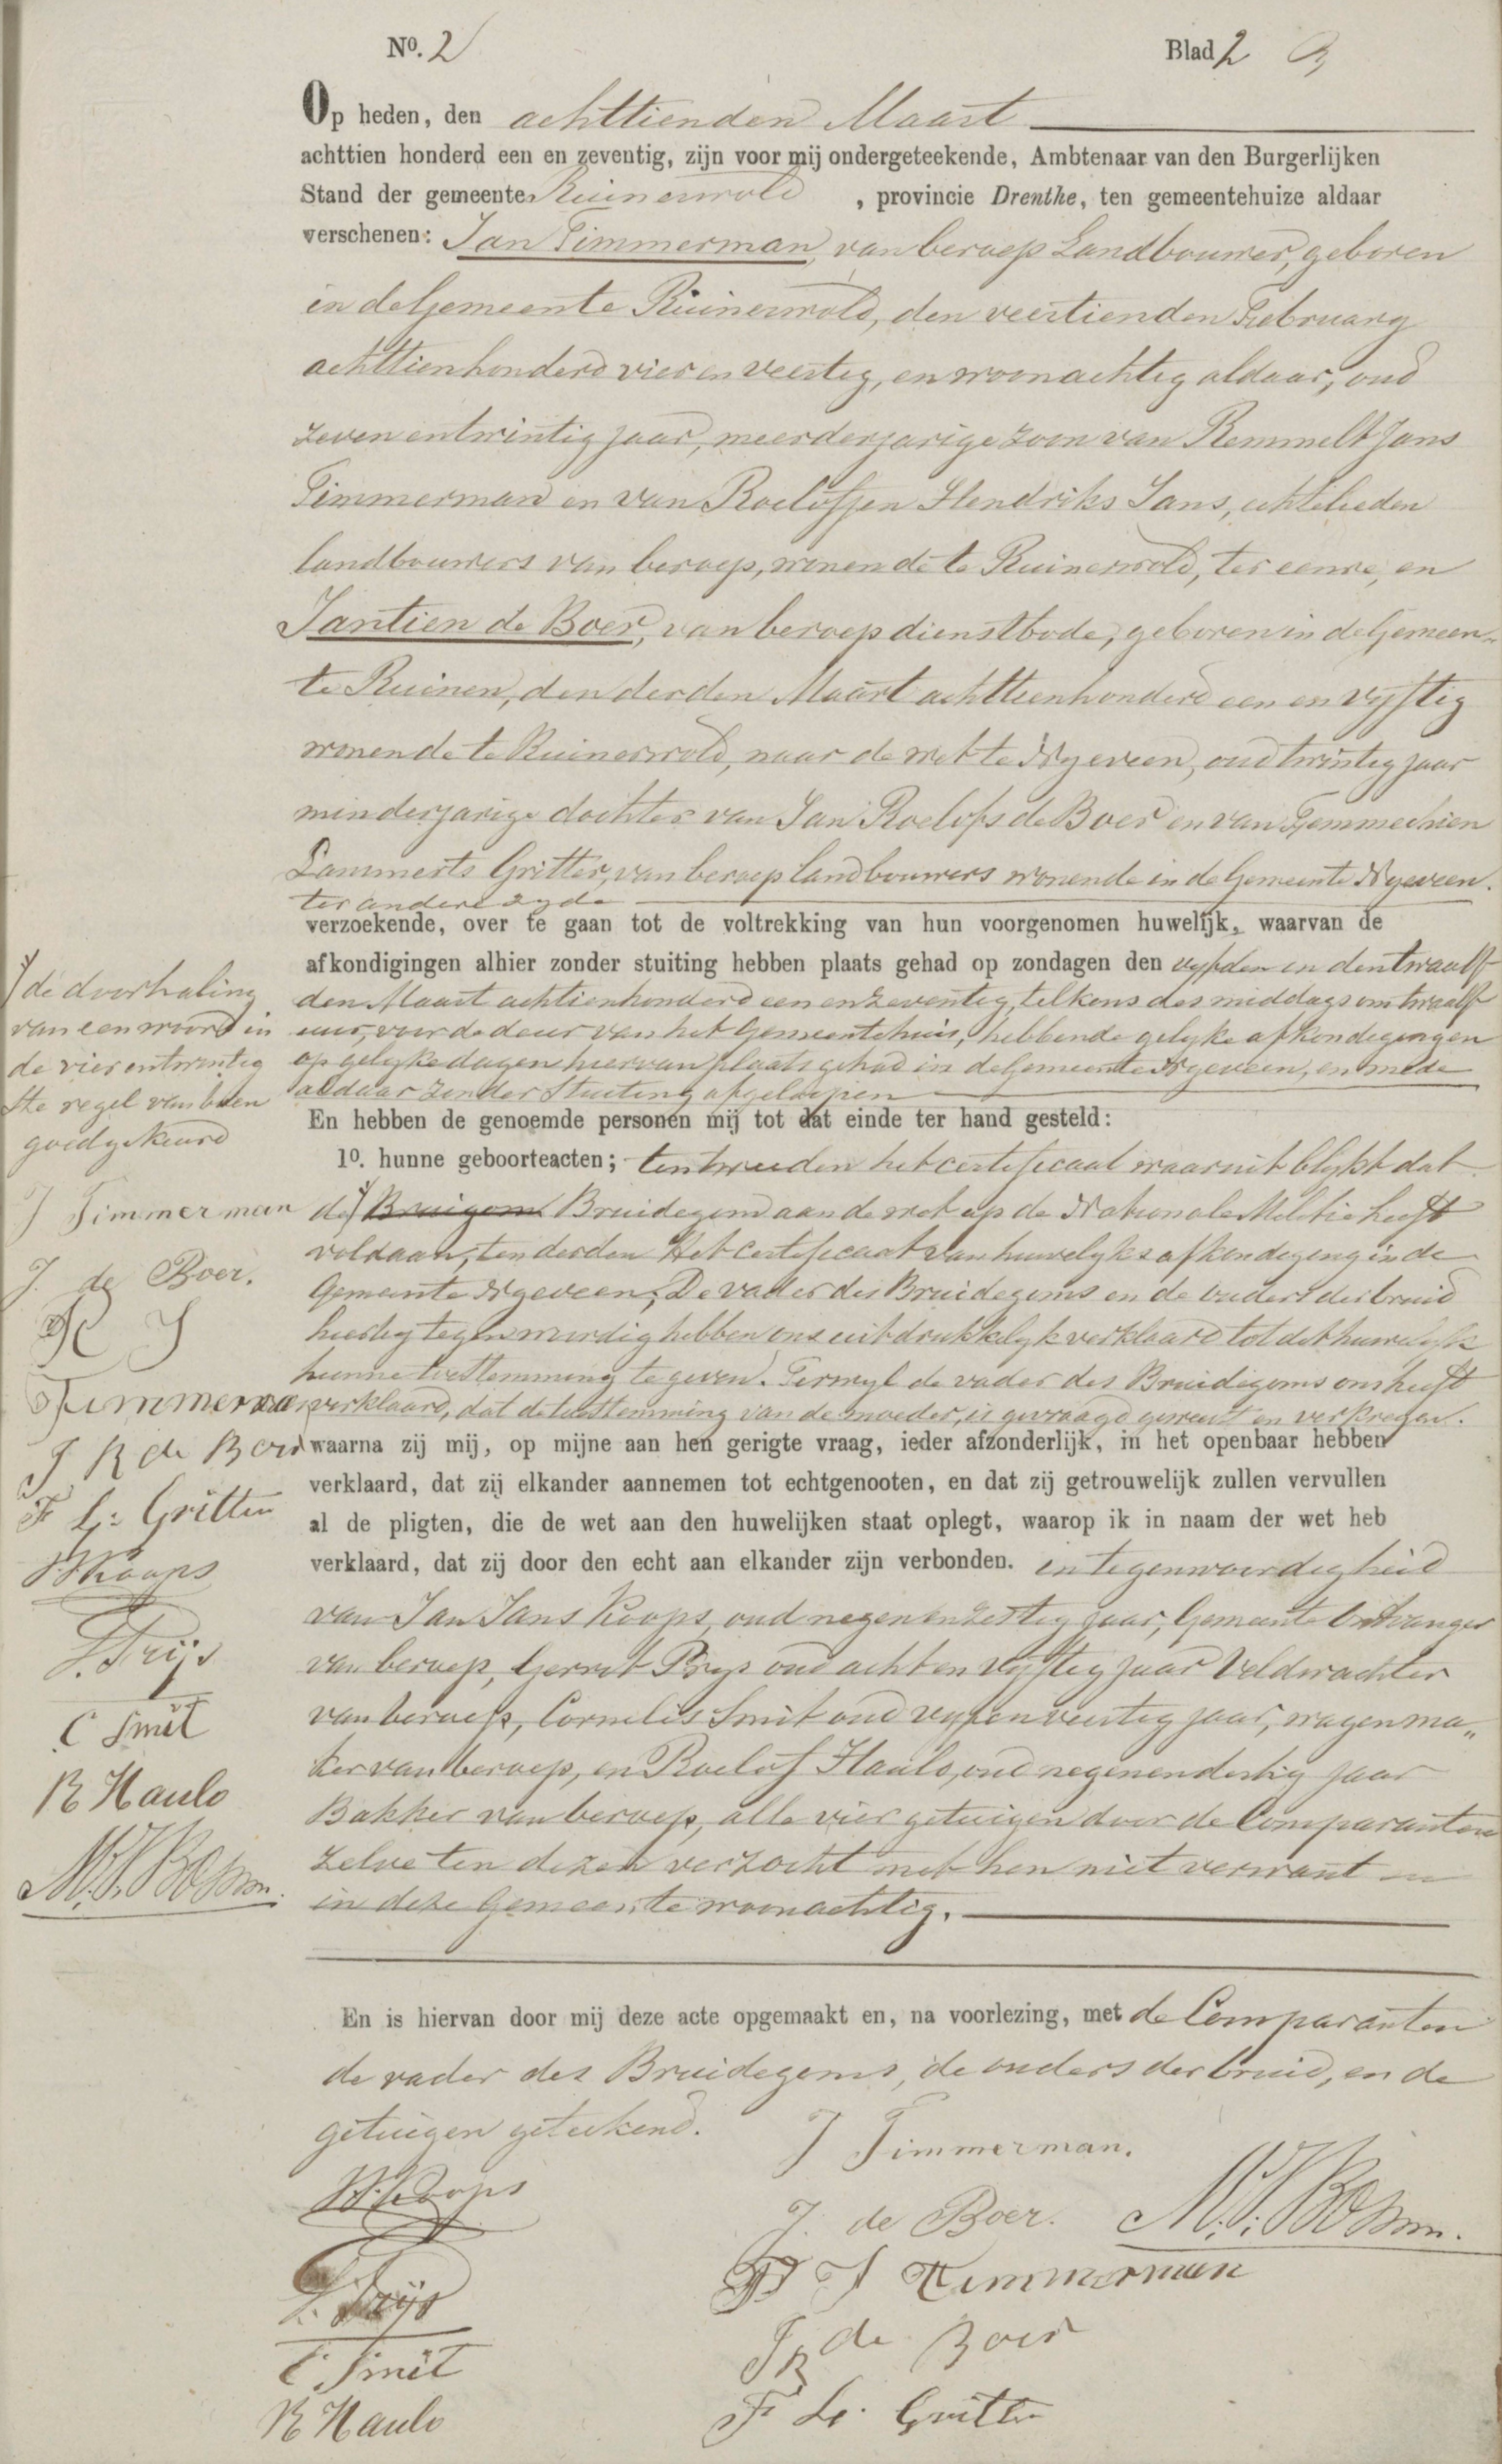 No. 2
Blad 2
Op heden, den achttienden Maart
achttien honderd een en zeventig, zijn voor mij ondergeteekende, Ambtenaar van den Burgerlijken
Stand der gemeente Ruinerwold, provincie Drenthe, ten gemeentehuize aldaar
verschenen: Jan Timmerman, van beroep Landbouwer, geboren
in de Gemeente Ruinerwold, den veertienden Februarij
achttienhonderd vier en veertig, en woonachtig aldaar, oud
zeven en twintig jaar, meerderjarige zoon van Remmelt Jans
Timmerman en van Roelofjen Hendriks Jans, echtelieden
landbouwers van beroep, wonende te Ruinerwold, ter eenre, en
Jantien de Boer, van beroep dienstbode, geboren in de Gemeen-
te Ruinen, den derden Maart achttienhonderd een en vijftig
wonende te Ruinerwold, naar de wet te Nijeveen, oud twintig jaar
minderjarige dochter van Jan Roelofs de Boer en van Femmechien
Lammerts Gritter, van beroep landbouwers wonende in de Gemeente Nijeveen.
ter andere zyde
verzoekende, over te gaan tot de voltrekking van hun voorgenomen huwelijk, waarvan de
afkondigingen alhier zonder stuiting hebben plaats gehad op zondagen den vijfden en den twaalf
den Maart achttienhonderd een en zeventig, telkens des middags om twaalf
uur, voor de deur van het Gemeentehuis, hebbende gelyke afkondigingen
op gelyke dagen hiervan plaats gehad in de Gemeente Nijeveen, en mede
aldaar zonder Stuiting afgeloopen
En hebben de genoemde personen mij tot dat einde ter hand gesteld:
1o. hunne geboorteacten; ten tweeden het certificaat waaruit blykt dat
de Bruigom Bruidegom aan de wet op de Nationale Militie heeft
voldaan, ten derden Het Certificaat van huwelyks afkondeging in de
Gemeente Nijeveen, De vader des Bruidegoms en de ouders der bruid
hierbij tegenwoordig hebben ons uitdrukkelyk verklaard tot dit huwelyk
hunne toestemming te geven. Terwyl de vader des Bruidegoms ons heeft
verklaard, dat de toestemming van de moeder, is gevraagd geweest en verkregen.
waarna zij mij, op mijne aan hen gerigte vraag, ieder afzonderlijk, in het openbaar hebben
verklaard, dat zij elkander aannemen tot echtgenooten, en dat zij getrouwelijk zullen vervullen
al de pligten, die de wet aan den huwelijken staat oplegt, waarop ik in naam der wet heb
verklaard, dat zij door den echt aan elkander zijn verbonden. in tegenwoordigheid
van Jan Jans Koops, oud negen en zestig jaar, Gemeente Ontvanger
van beroep, Gerrit Prijs oud acht en vijftig jaar Veldwachter
van beroep, Cornelis Smit oud vyf en veertig jaar, wagenma„
ker van beroep, en Roelof Hauls, oud negenendertig jaar
Bakker van beroep, alle vier getuigen door de Comparanten
zelve ten dezen verzocht met hen niet verwant en
in deze Gemeente woonachtig.
de doorhaling
van een woord in
de vier en twintig
ste regel van boven
goedgekeurd
J Timmerman
J. de Boer.
R J
Timmerman
J R de Boer
F L: Gritter
JJKoops
G. Prijs
C Smit
R Hauls
En is hiervan door mij deze acte opgemaakt en, na voorlezing, met de Comparanten
de vader des Bruidegoms, de ouders der bruid, en de
getuigen geteekend.
J Timmerman.
J. de Boer.
R J Timmerman
J R de Boer
F L. Gritter
JJKoops
G. Prijs
C Smit
R Hauls